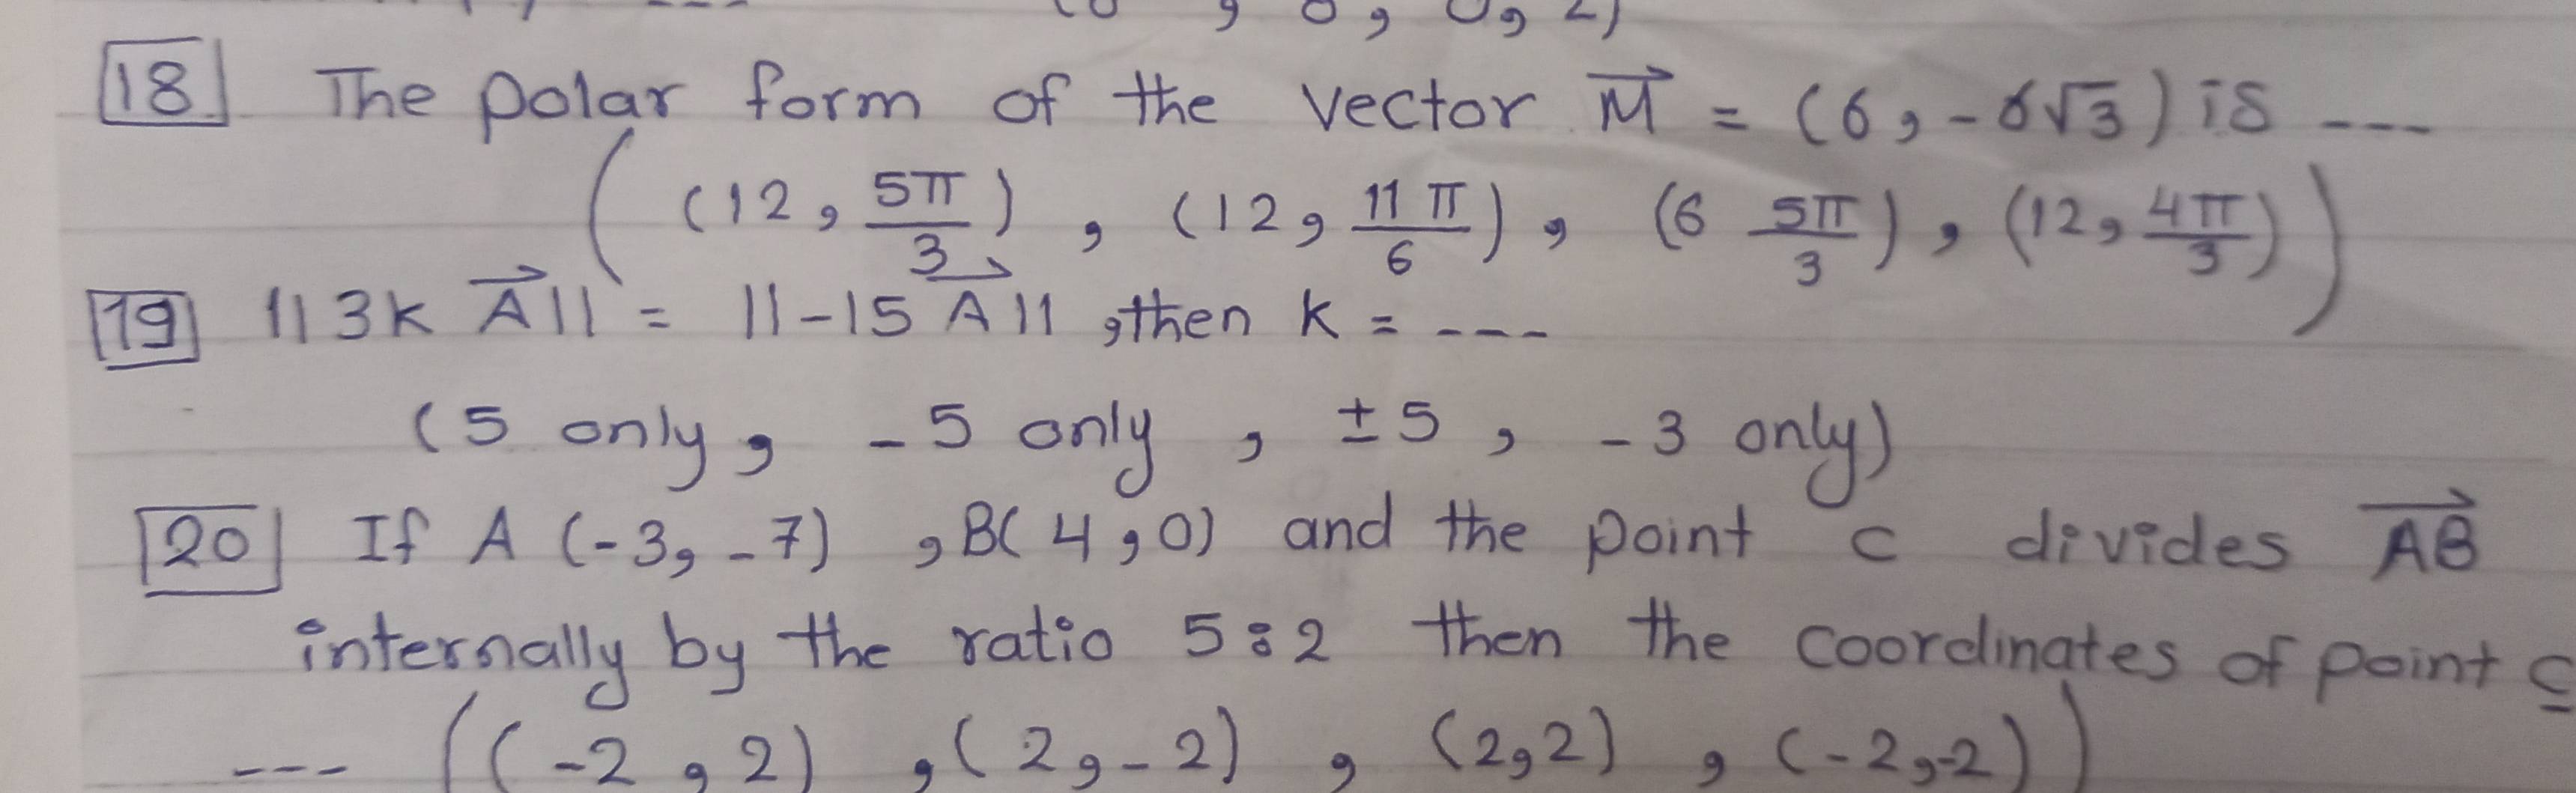 18 The polar form of the vector M⃗ = (6, -6√3) is ---
((12, 5π/3), (12, 11π/6), (6 5π/3), (12, 4π/3))
19 ||3k A⃗|| = ||-15 A⃗||, then k = ---
(5 only, -5 only, ±5, -3 only)
20 If A (-3, -7), B(4, 0) and the point C divides A⃗B⃗
internally by the ratio 5:2 then the coordinates of point C
--- ((-2, 2), (2, -2), (2, 2), (-2, -2))